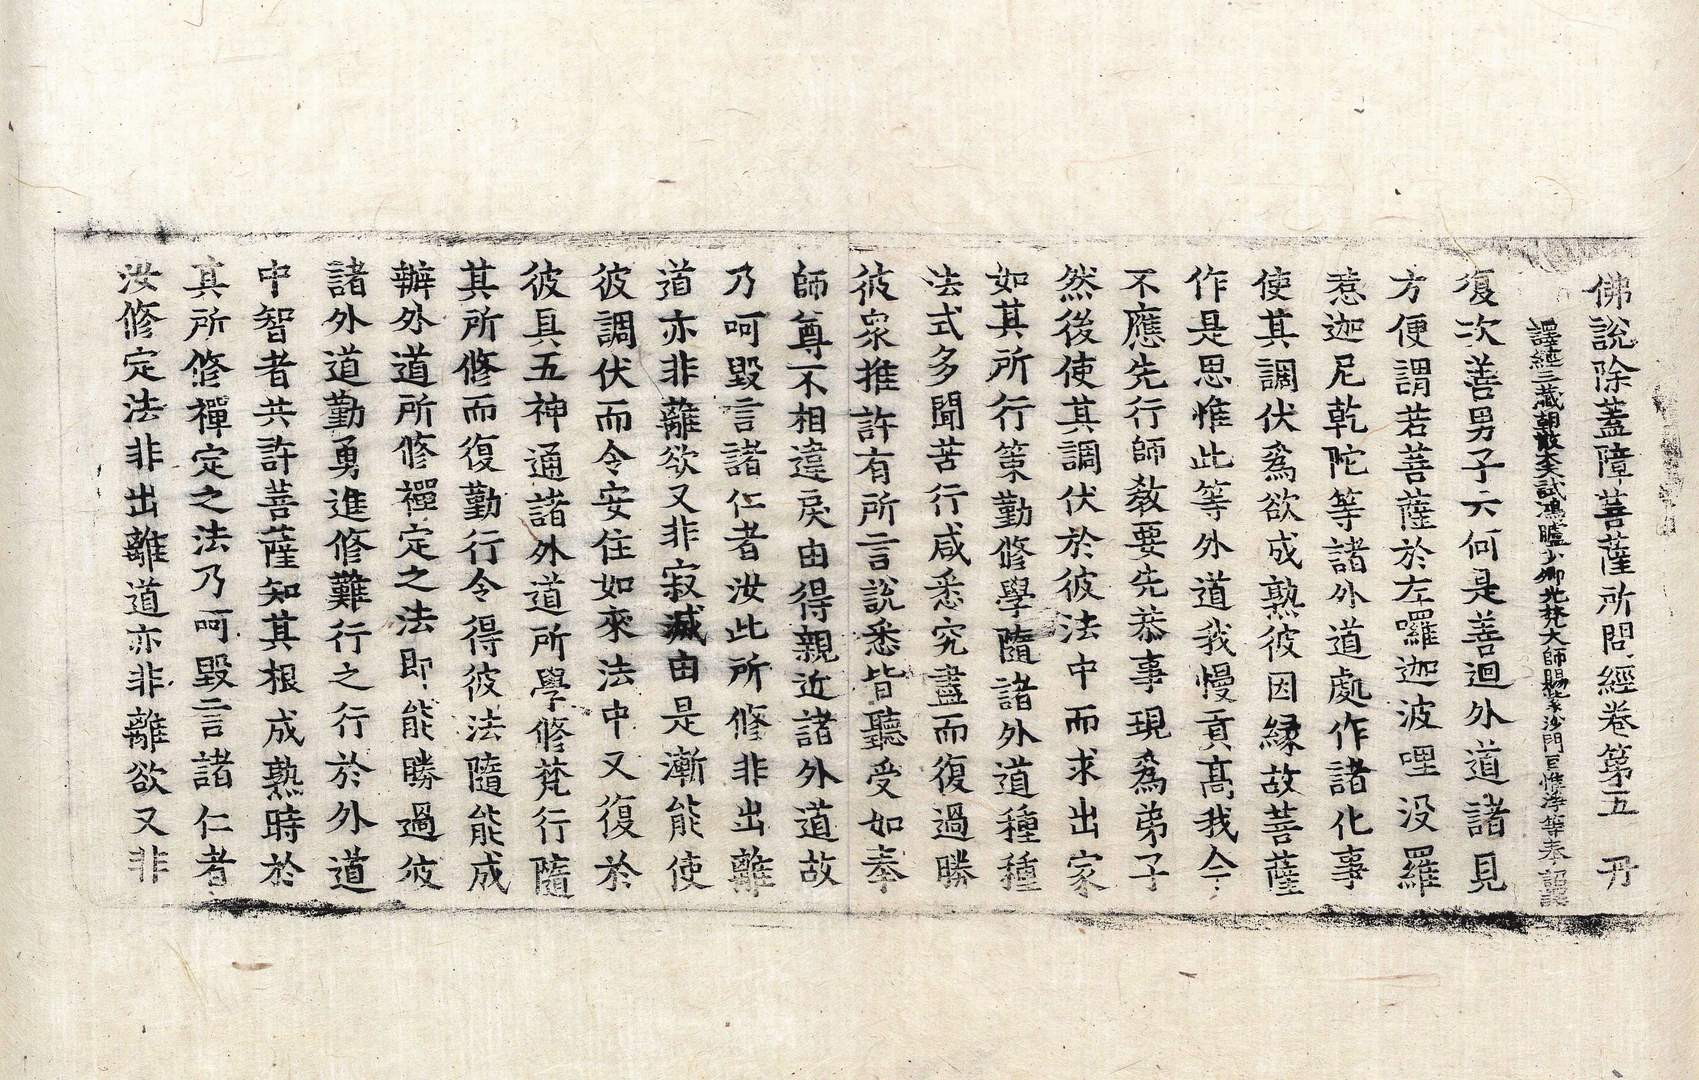 佛說除蓋障菩薩所問經卷第五　丹
譯經三藏朝散大夫試鴻臚少卿光梵大師賜紫沙門臣惟淨等奉　詔譯
復次善男子云何是善迴外道諸見
方便謂若菩薩於左囉迦波哩沒羅
惹迦尼乾陀等諸外道處作諸化事
使其調伏爲欲成熟彼因縁故菩薩
作是思惟此等外道我慢貢高我今
不應先行師教要先恭事現爲弟子
然後使其調伏於彼法中而求出家
如其所行策勤修學隨諸外道種種
法式多聞苦行咸悉究盡而復過勝
彼衆推許有所言說悉皆聽受如奉
師尊不相違戾由得親近諸外道故
乃呵毀言諸仁者汝此所修非出離
道亦非離欲又非寂滅由是漸能使
彼調伏而令安住如來法中又復於
彼具五神通諸外道所學修梵行隨
其所修而復勤行令得彼法隨能成
辦外道所修禪定之法即能勝過彼
諸外道勤勇進修難行之行於外道
中智者共許菩薩知其根成熟時於
其所修禪定之法乃呵毀言諸仁者
汝修定法非出離道亦非離欲又非